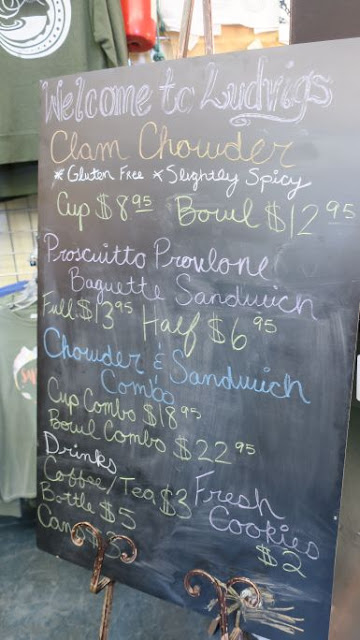 Welcome to Ludvigs
Clam Chowder
* Gluten Free * Slightly Spicy
Cup $8.95 Bowl $12.95
Prosciutto Provlone
Baguette Sandwich
Full $13.95 Half $6.95
Chowder & Sandwich
Combo
Cup Combo $18.95
Bowl Combo $22.95
Drinks
Coffee/Tea $3
Bottle $5
Can
Fresh
Cookies
$2